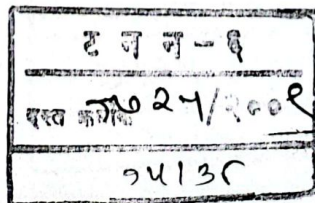 ट न न - ६
दस्त क्रमांक ७७२५/२००९
१५/३८